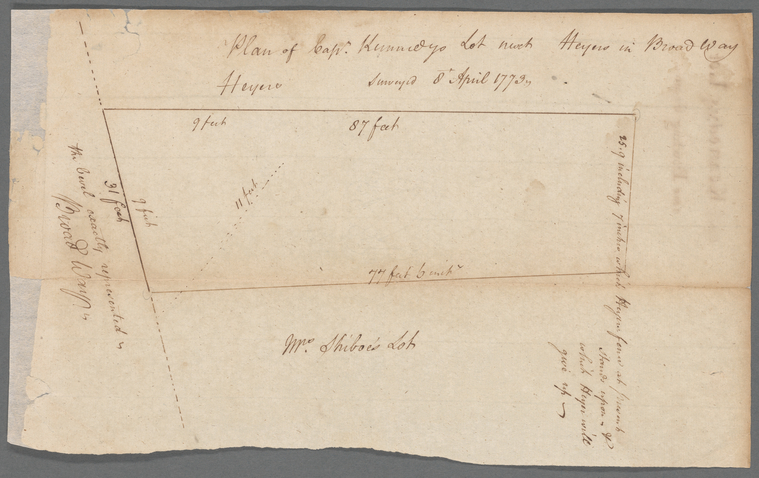 Plan of Capn. Kennedys Lot next Heyers in Broad Way
Heyers Surveyed 8th April 1773
9 feet
87 feet
25.9 including 7 inches which Heyers fence at present
stands upon &
which Heyer will
give up
11 feet
9 feet
31 feet
the bevel exactly represented
Broad Way
77 feet 6 inchs
Mrs. Shiboe's Lot